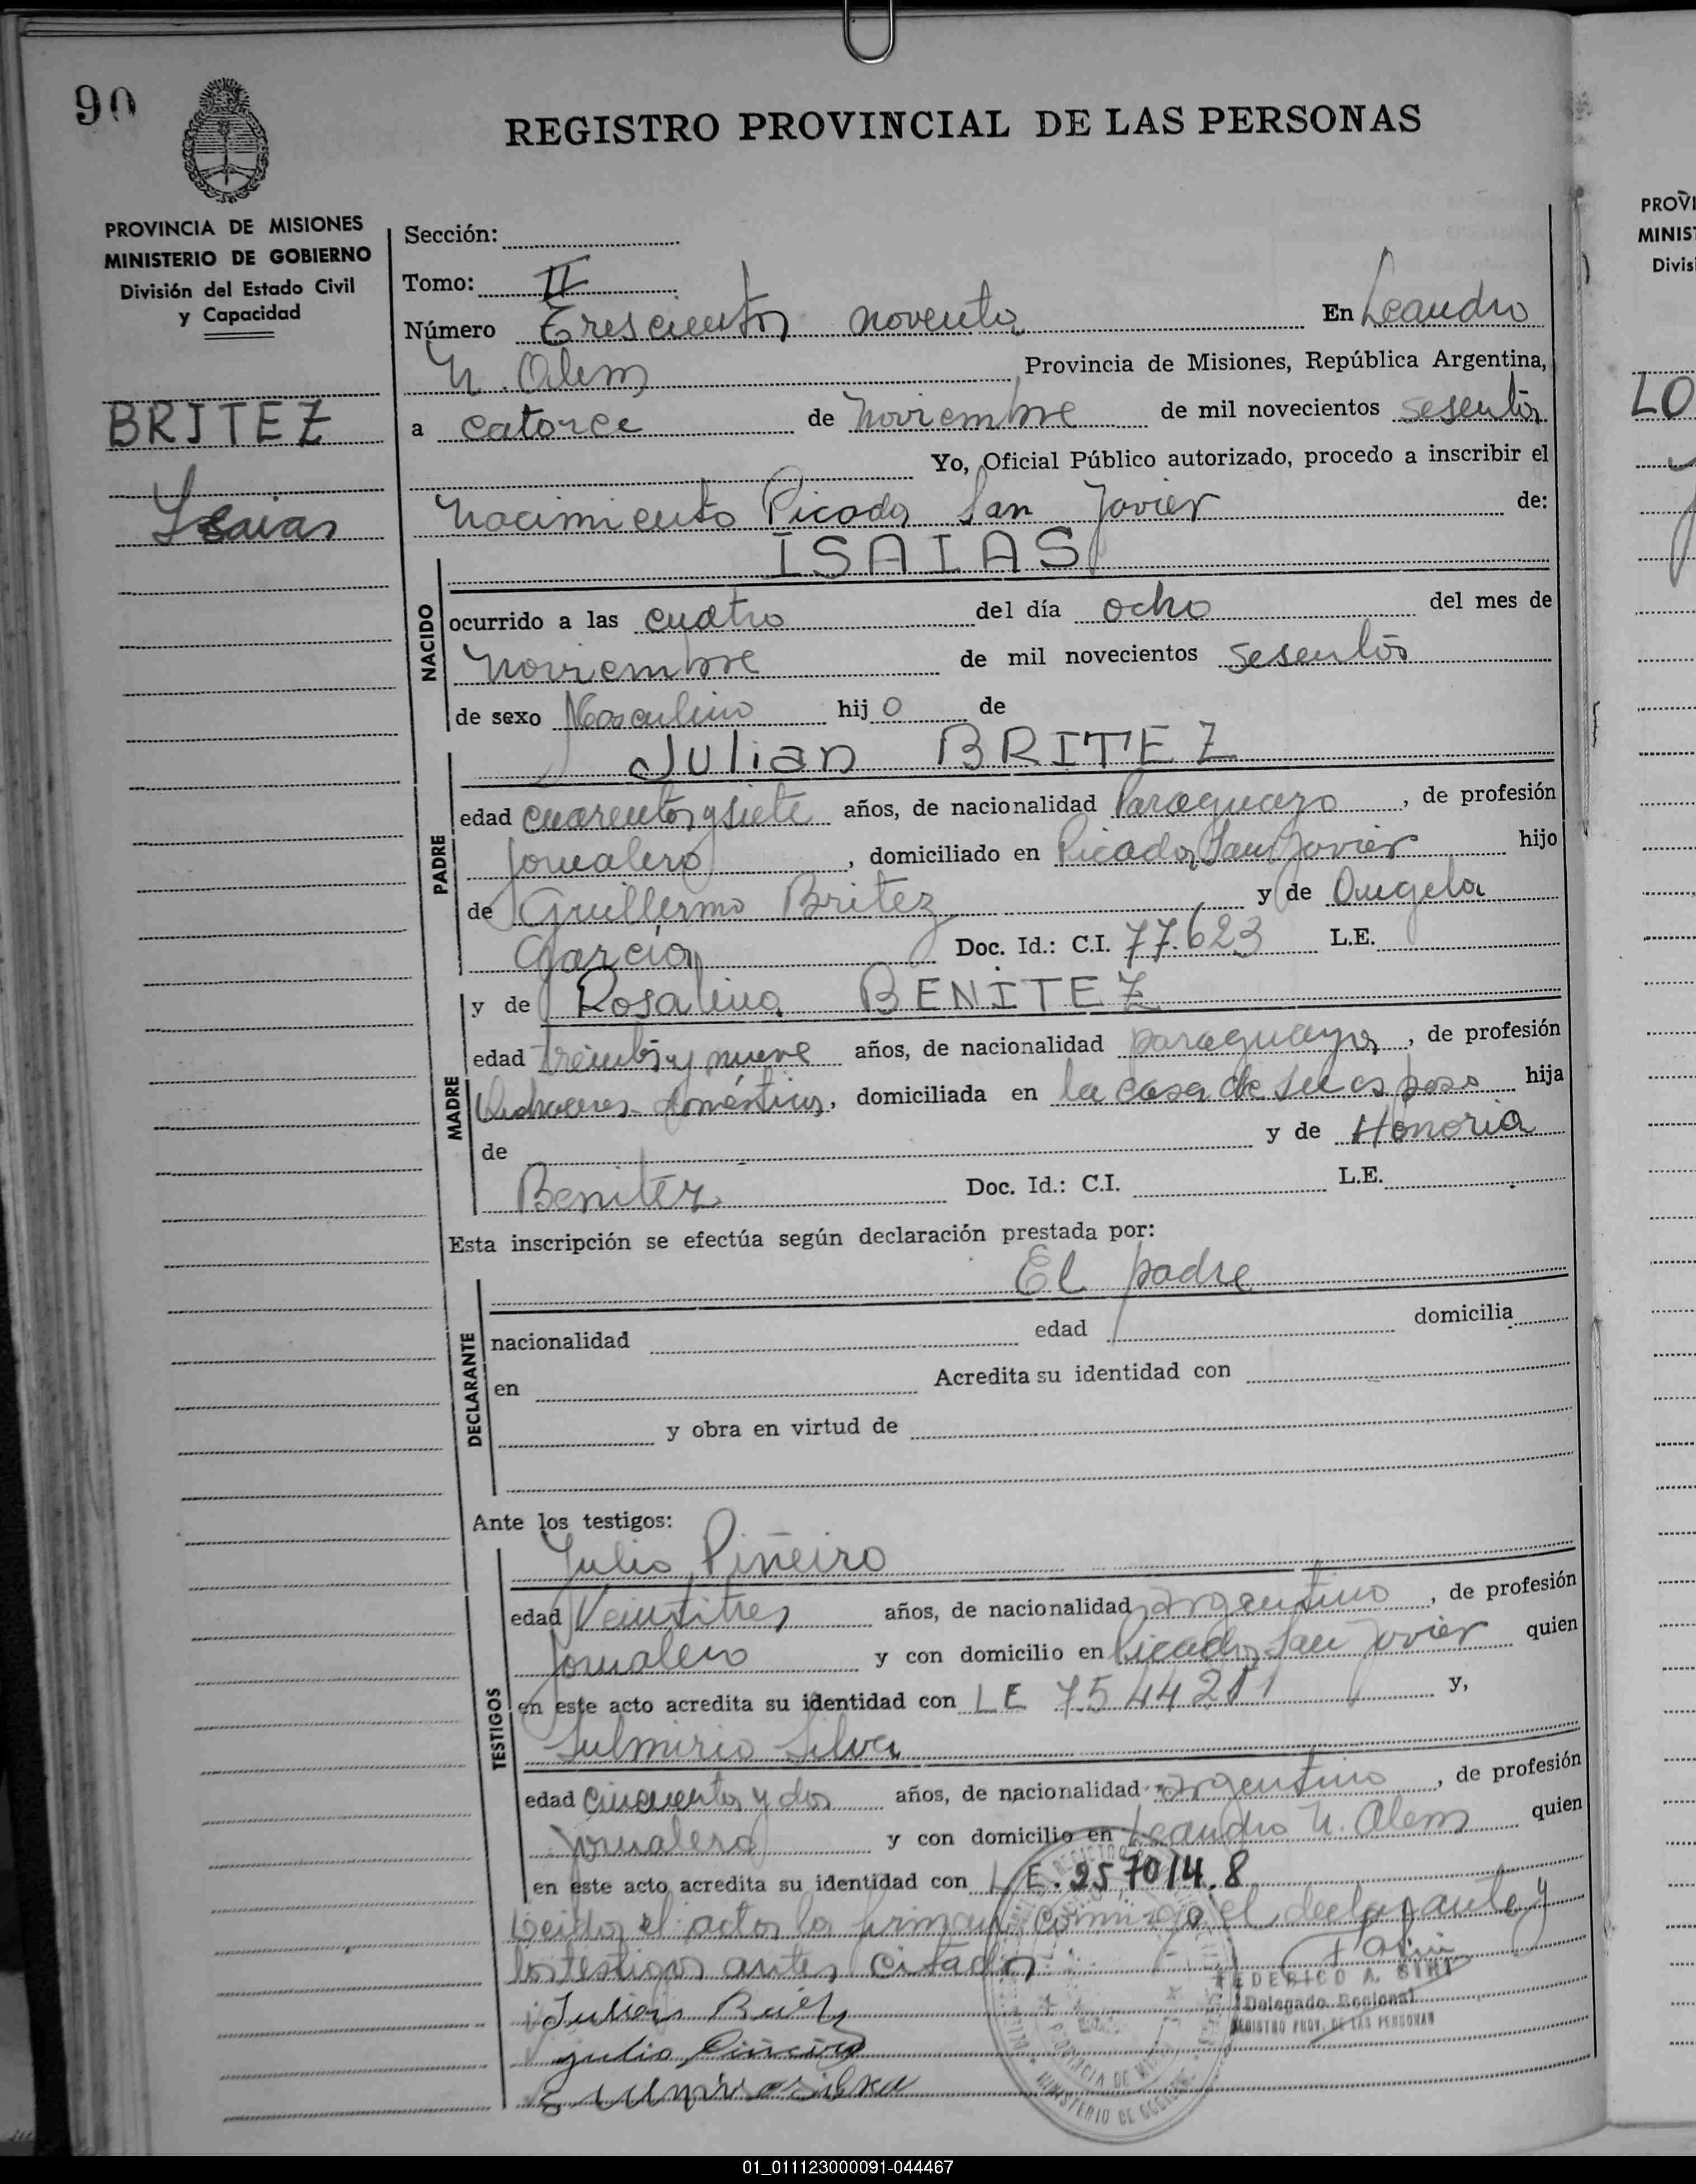 90
REGISTRO PROVINCIAL DE LAS PERSONAS
PROVINCIA DE MISIONES
MINISTERIO DE GOBIERNO
División del Estado Civil
y Capacidad
BRITEZ
Isaias
Sección:
Tomo: II
Número Trescientos noventa En Leandro
N. Alem Provincia de Misiones, República Argentina,
a catorce de noviembre de mil novecientos sesenta
Yo, Oficial Público autorizado, procedo a inscribir el
nacimiento Picada San Javier de:
ISAIAS
NACIDO
ocurrido a las cuatro del día ocho del mes de
noviembre de mil novecientos sesenta
de sexo Masculino hijo de
Julian BRITEZ
PADRE
edad cuarenta y siete años, de nacionalidad Paraguayo, de profesión
jornalero, domiciliado en Picada San Javier hijo
de Guillermo Britez y de Angela
Garcia Doc. Id.: C.I. 77.623 L.E.
y de Rosalina BENITEZ
MADRE
edad treinta y nueve años, de nacionalidad paraguaya, de profesión
Quehaceres domésticos, domiciliada en la casa de su esposo hija
de y de Honoria
Benitez Doc. Id.: C.I. L.E.
Esta inscripción se efectúa según declaración prestada por:
El padre
DECLARANTE
nacionalidad edad domicilia
en Acredita su identidad con
y obra en virtud de
Ante los testigos:
Julio Piñeiro
TESTIGOS
edad Veintitres años, de nacionalidad argentino, de profesión
Jornalero y con domicilio en Picada San Javier quien
en este acto acredita su identidad con LE 7544211 y,
Sulmirio Silva
edad cincuenta y dos años, de nacionalidad argentino, de profesión
jornalero y con domicilio en Leandro N. Alem quien
en este acto acredita su identidad con L.E. 257014.8
Leida el acta la firman conmigo el declarante y
los testigos antes citados
FEDERICO A.
Delegado Regional
REGISTRO PROV. DE LAS PERSONAS
Julian
Julio Piñeiro
Silva
PROVI
MINIST
Divisi
LO
01_011123000091-044467